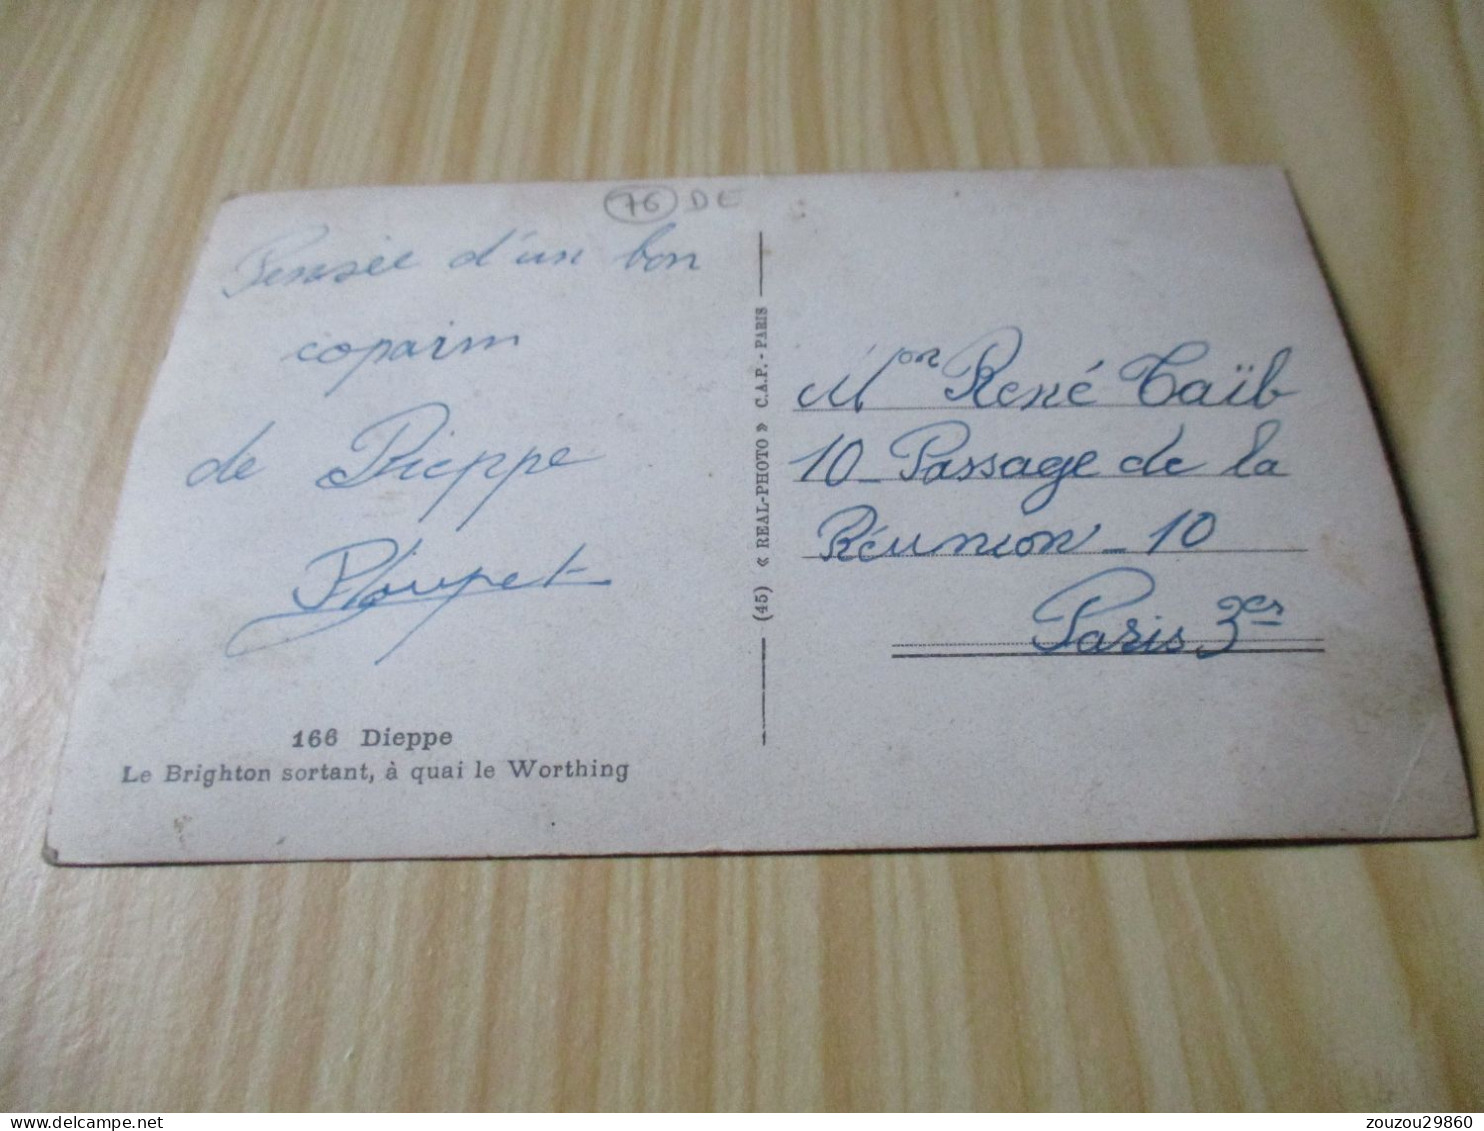 76 DE
Pensée d'un bon
coparin
de Dieppe
166 Dieppe
Le Brighton sortant, à quai le Worthing
(45) « REAL-PHOTO » C.A.P. - PARIS
Mon René Taïb
10 - Passage de la
Réunion - 10
Paris 3er
zouzou29860